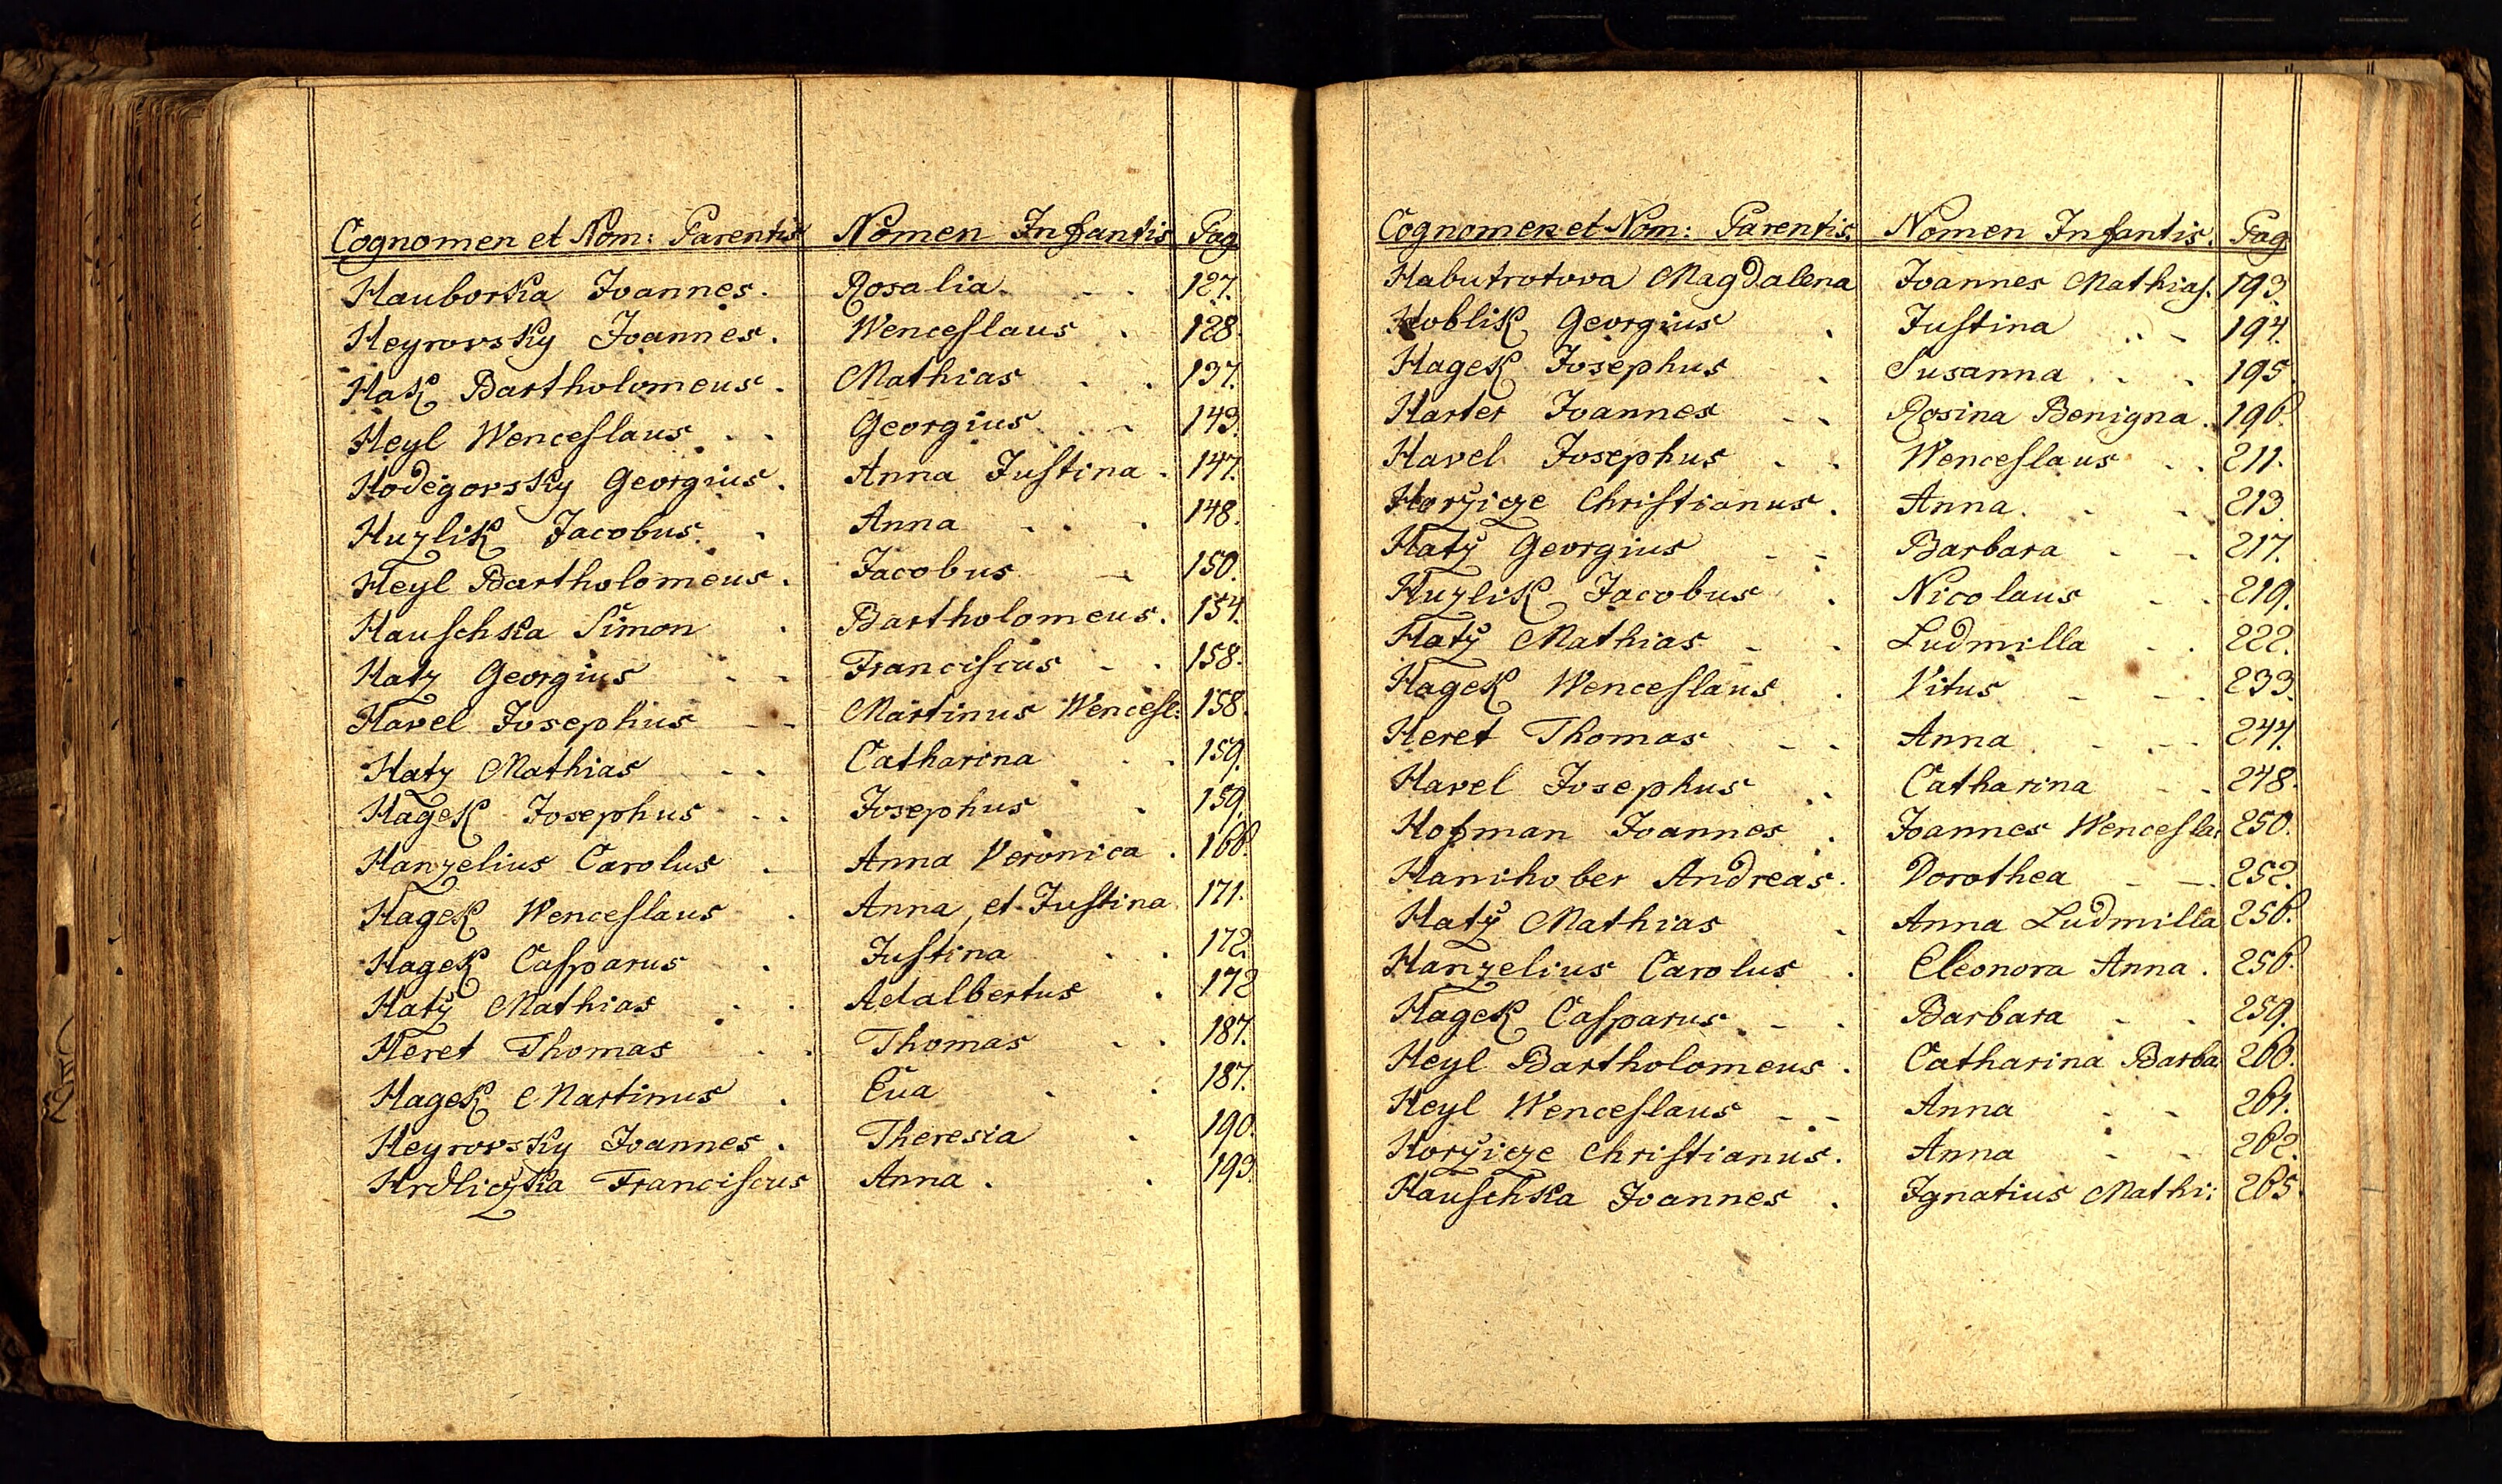 Cognomen et Nom: Parentis Nomen Infantis Pag
Hauborka Joannes. Rosalia. 127.
Heyrovsky Joannes. Wenceslaus. 128.
Hak Bartholomeus. Mathias. 137.
Heyl Wenceslaus. Georgius 143.
Hodėgorsky Georgius. Anna Justina. 147.
Huzlik Jacobus. Anna 148.
Heyl Bartholomeus. Jacobus 150.
Hauschka Simon. Bartholomeus. 154.
Hatz Georgius Franciscus 158.
Havel Josephus Martinus Wencesl: 158.
Hatz Mathias Catharina 159.
Hagek Josephus Josephus 159.
Hanzelius Carolus. Anna Veronica. 166.
Hagek Wenceslaus. Anna, et Justina 171.
Hagek Casparus. Justina 172.
Hatÿ Mathias Adalbertus. 172
Heret Thomas Thomas 187.
Hagek Martinus. Eua 187.
Heyrovsky Joannes. Theresia 190.
Hrdliczka Franciscus Anna. 193.
Cognomen et Nom: Parentis. Nomen Infantis. Pag
Habutrotova Magdalena Joannes Mathias. 193.
Hoblik Georgius Justina 194.
Hagek Josephus Susanna 195.
Harter Joannes Rosina Benigna. 196.
Havel Josephus Wenceslaus 211.
Horzicze Christianus. Anna. 213
Hatÿ Georgius Barbara 217.
Huzlik Jacobus. Nicolaus 219.
Hatÿ Mathias Ludmilla 222.
Hagek Wenceslaus. Vitus 233.
Heret Thomas Anna 244.
Havel Josephus Catharina 248.
Hofman Joannes. Joannes Wencesla: 250.
Hanihober Andreas. Dorothea 252.
Hatÿ Mathias Anna Ludmilla 256.
Hanzelius Carolus. Eleonora Anna. 256.
Hagek Casparus Barbara 259.
Heyl Bartholomeus. Catharina Barba: 260.
Heyl Wenceslaus Anna 261.
Horzicze Christianus. Anna 262.
Hauschka Joannes. Ignatius Mathi: 265.